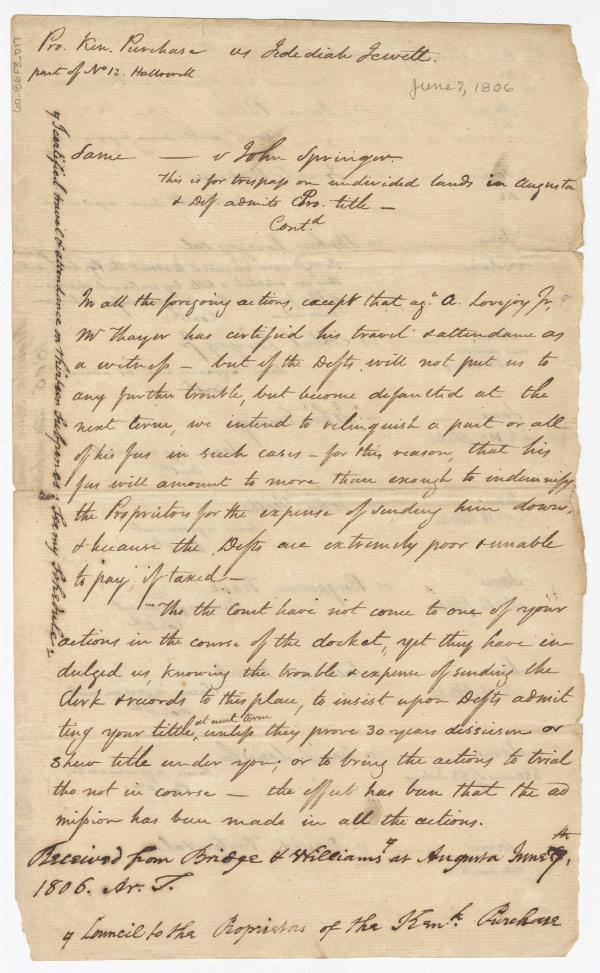 Pro. Ken. Purchase vs Jedediah Jewett.
part of No 12. Hallowell
June 7, 1806
Same — v John Springer.
This is for trespass on undivided lands in Augusta
& Deft admits Pro. title —
Contd
In all the foregoing actions, except that agt A. Lovejoy Jr,
Mr Thayer has certified his travel & attendance as
a witness — but if the Defts will not put us to
any further trouble, but become defaulted at the
next term, we intend to relinquish a part or all
of his fees in such cases — for this reason, that his
fees will amount to more than enough to indemnify
the Proprietors for the expense of sending him down,
& because the Defts are extremely poor & unable
to pay, if taxed —
Tho the Court have not come to one of your
actions in the course of the docket, yet they have in
dulged us, knowing the trouble & expense of sending the
Clerk & records to this place, to insist upon Defts admit
ting your tittle, at next term unless they prove 30 years disseisen or
shew title under you; or to bring the actions to trial
tho not in course — the effect has been that the ad
mission has been made in all the actions.
Received from Bridge & Williams at Augusta June 7th,
1806. Ar. T.
Council to the Proprietors of the Kenk Purchase
I certified travel & attendance on thirteen Subpenas; See my Schedule